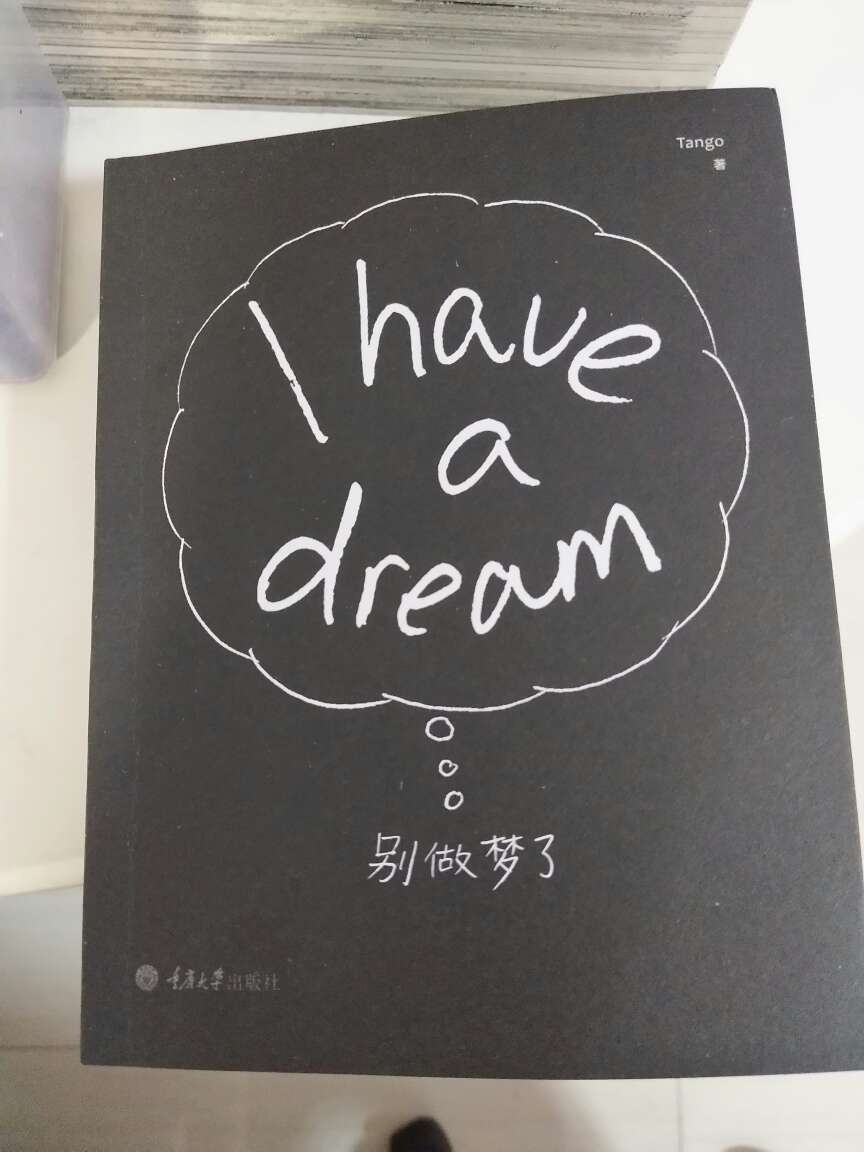 Tango
著
I have
a
dream
别做梦了
重庆大学出版社